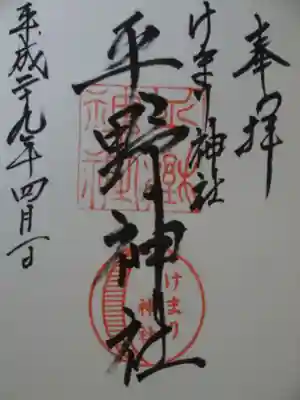 奉拝
けまり神社
平野神社
平成二十九年四月一日
平野神社
けまり
神社